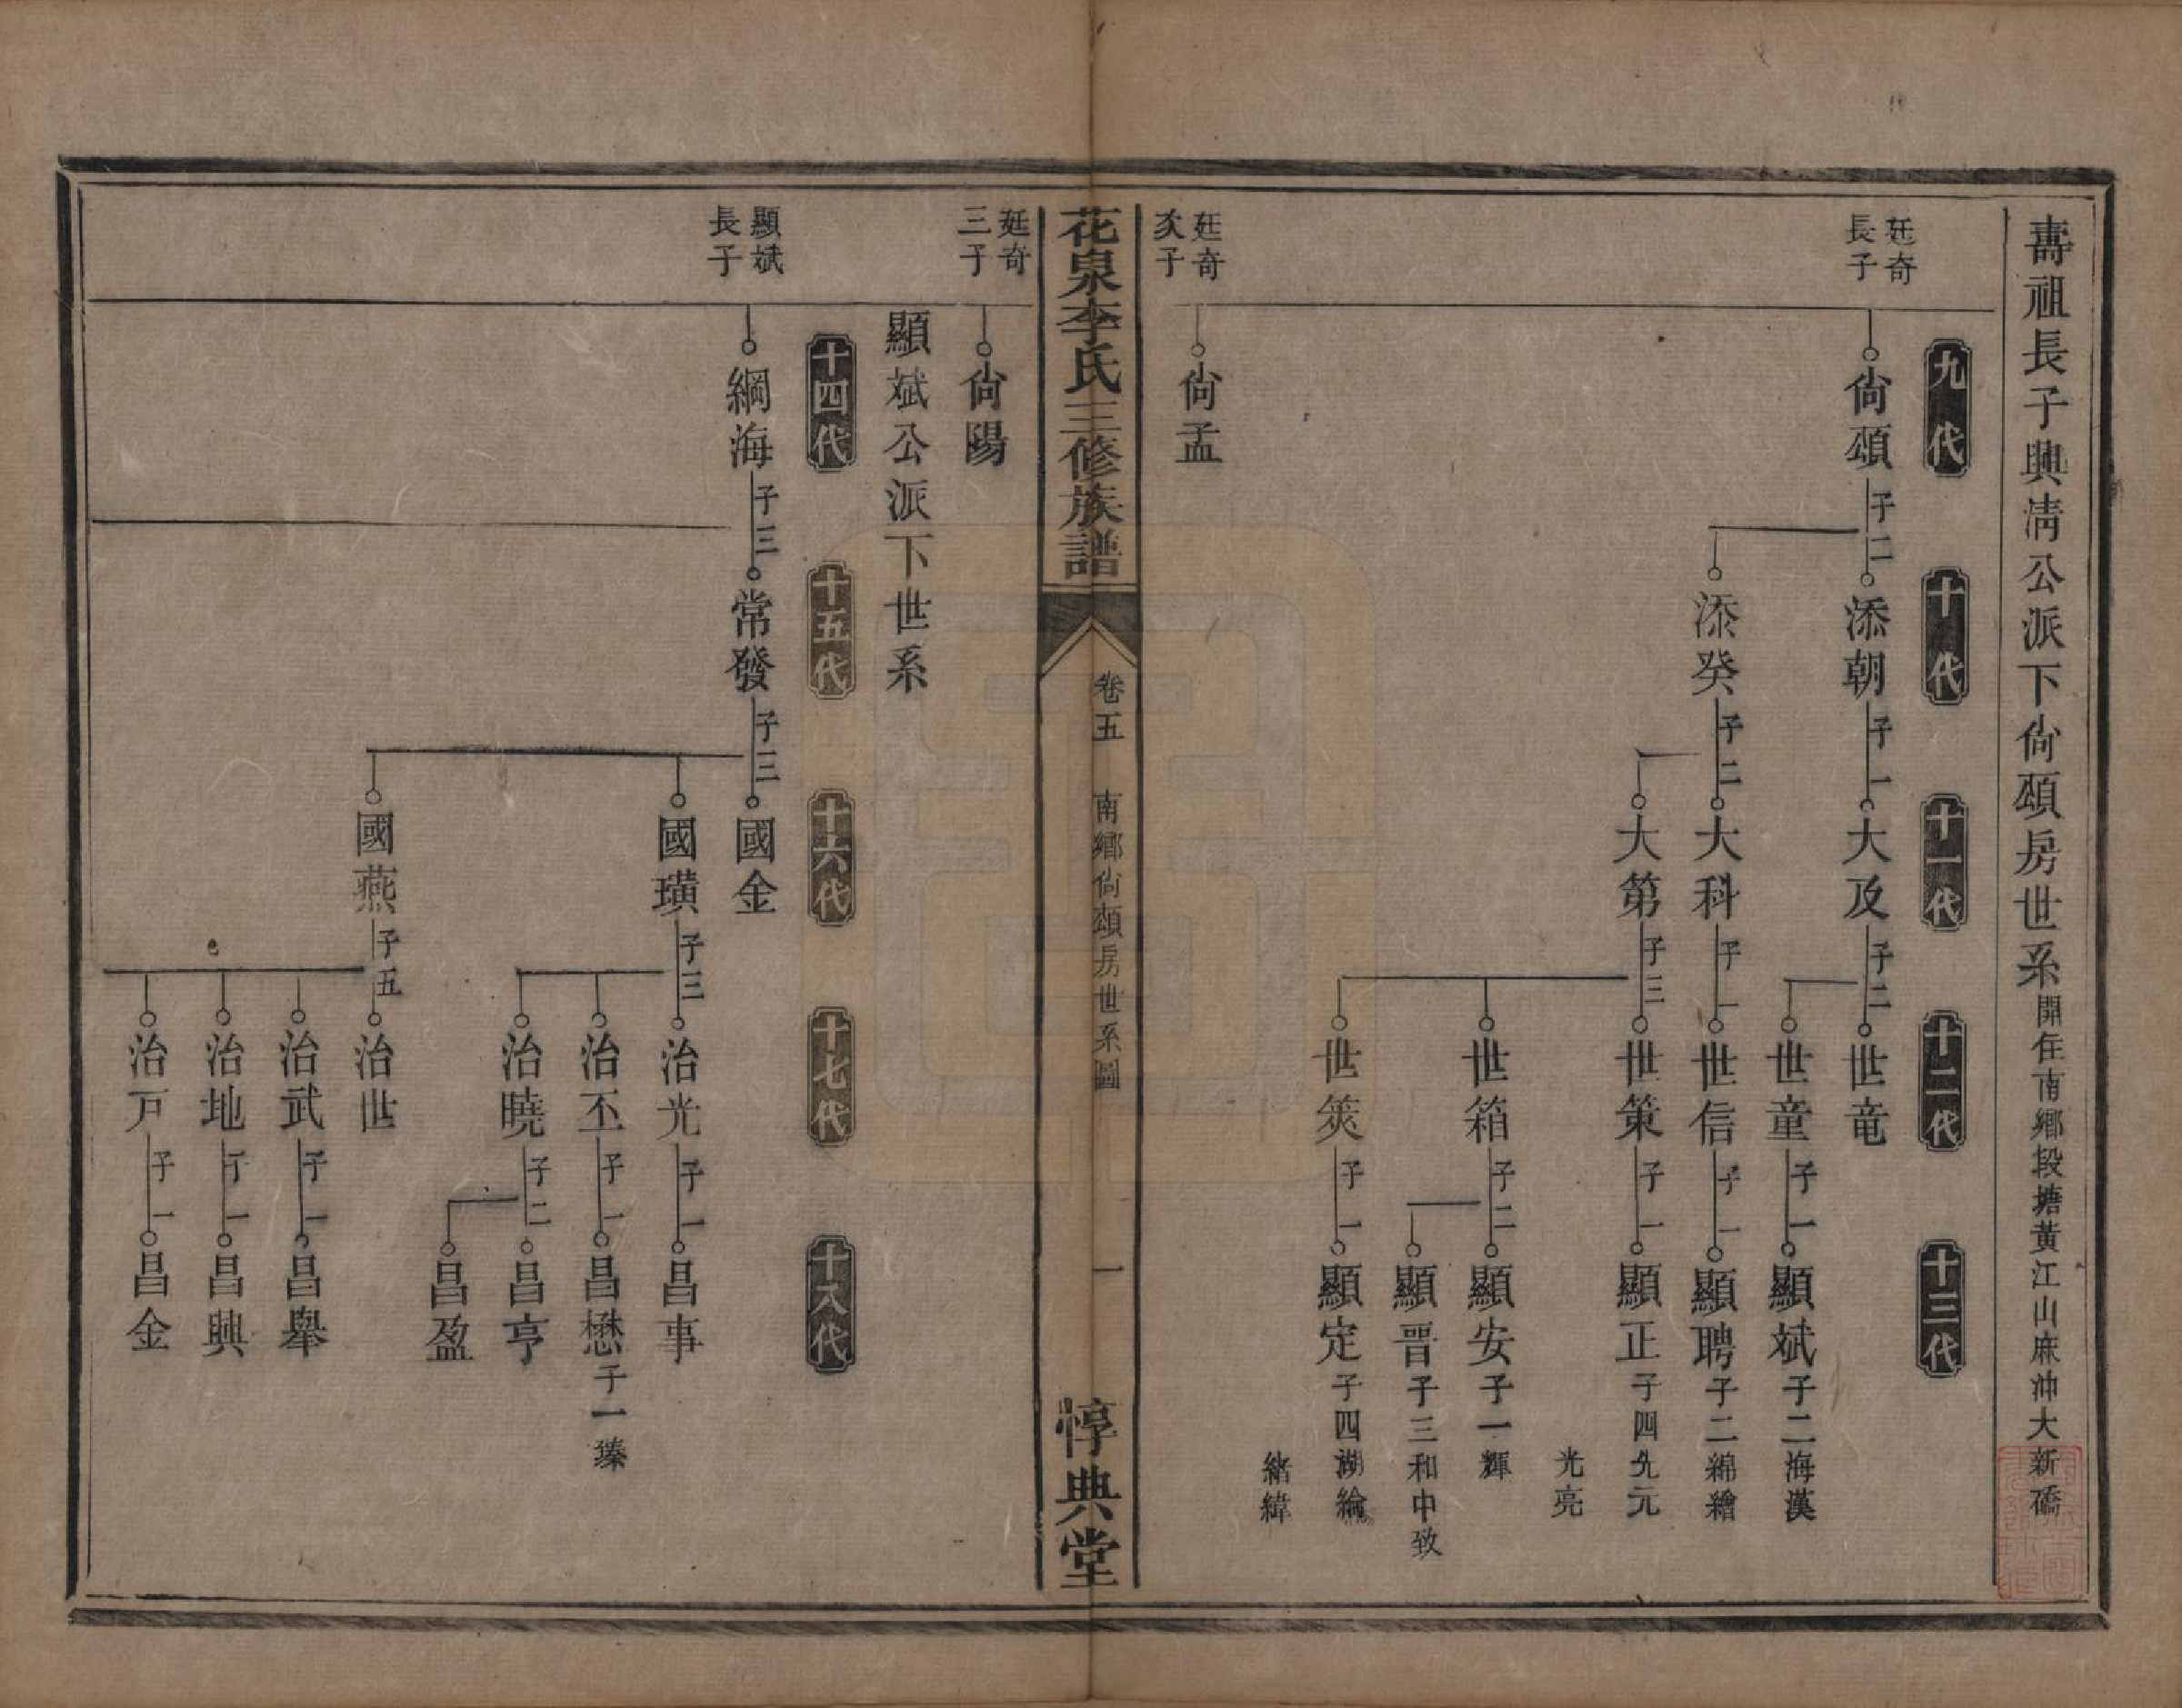 壽祖長子興淸公派下尙頌房世系開住南鄉段塘黃江山麻沖大新礄
九代
十代
十一代
十二代
十三代
廷奇
長子
尙頌子二
添朝子一
大及子二
世竜
世童子一
顯斌子二海漢
添癸子二
大科子一
世信子一
顯聘子二綿繪
大第子三
世策子一
顯正子四先元
光亮
世箱子二
顯安子一輝
顯晋子三和中致
世筴子一
顯定子四湖綸
緒緯
廷奇
次子
尙孟
花泉李氏三修族譜
卷五
南鄉尙頌房世系圖
一
惇典堂
廷奇
三子
尙陽
顯斌公派下世系
十四代
十五代
十六代
十七代
十八代
顯斌
長子
綱海子三
常發子三
國金
國璜子三
治光子一
昌事
治丕子一
昌懋子一臻
治曉子二
昌亨
昌盈
國燕子五
治世
治武子一
昌舉
治地子一
昌興
治戸子一
昌金